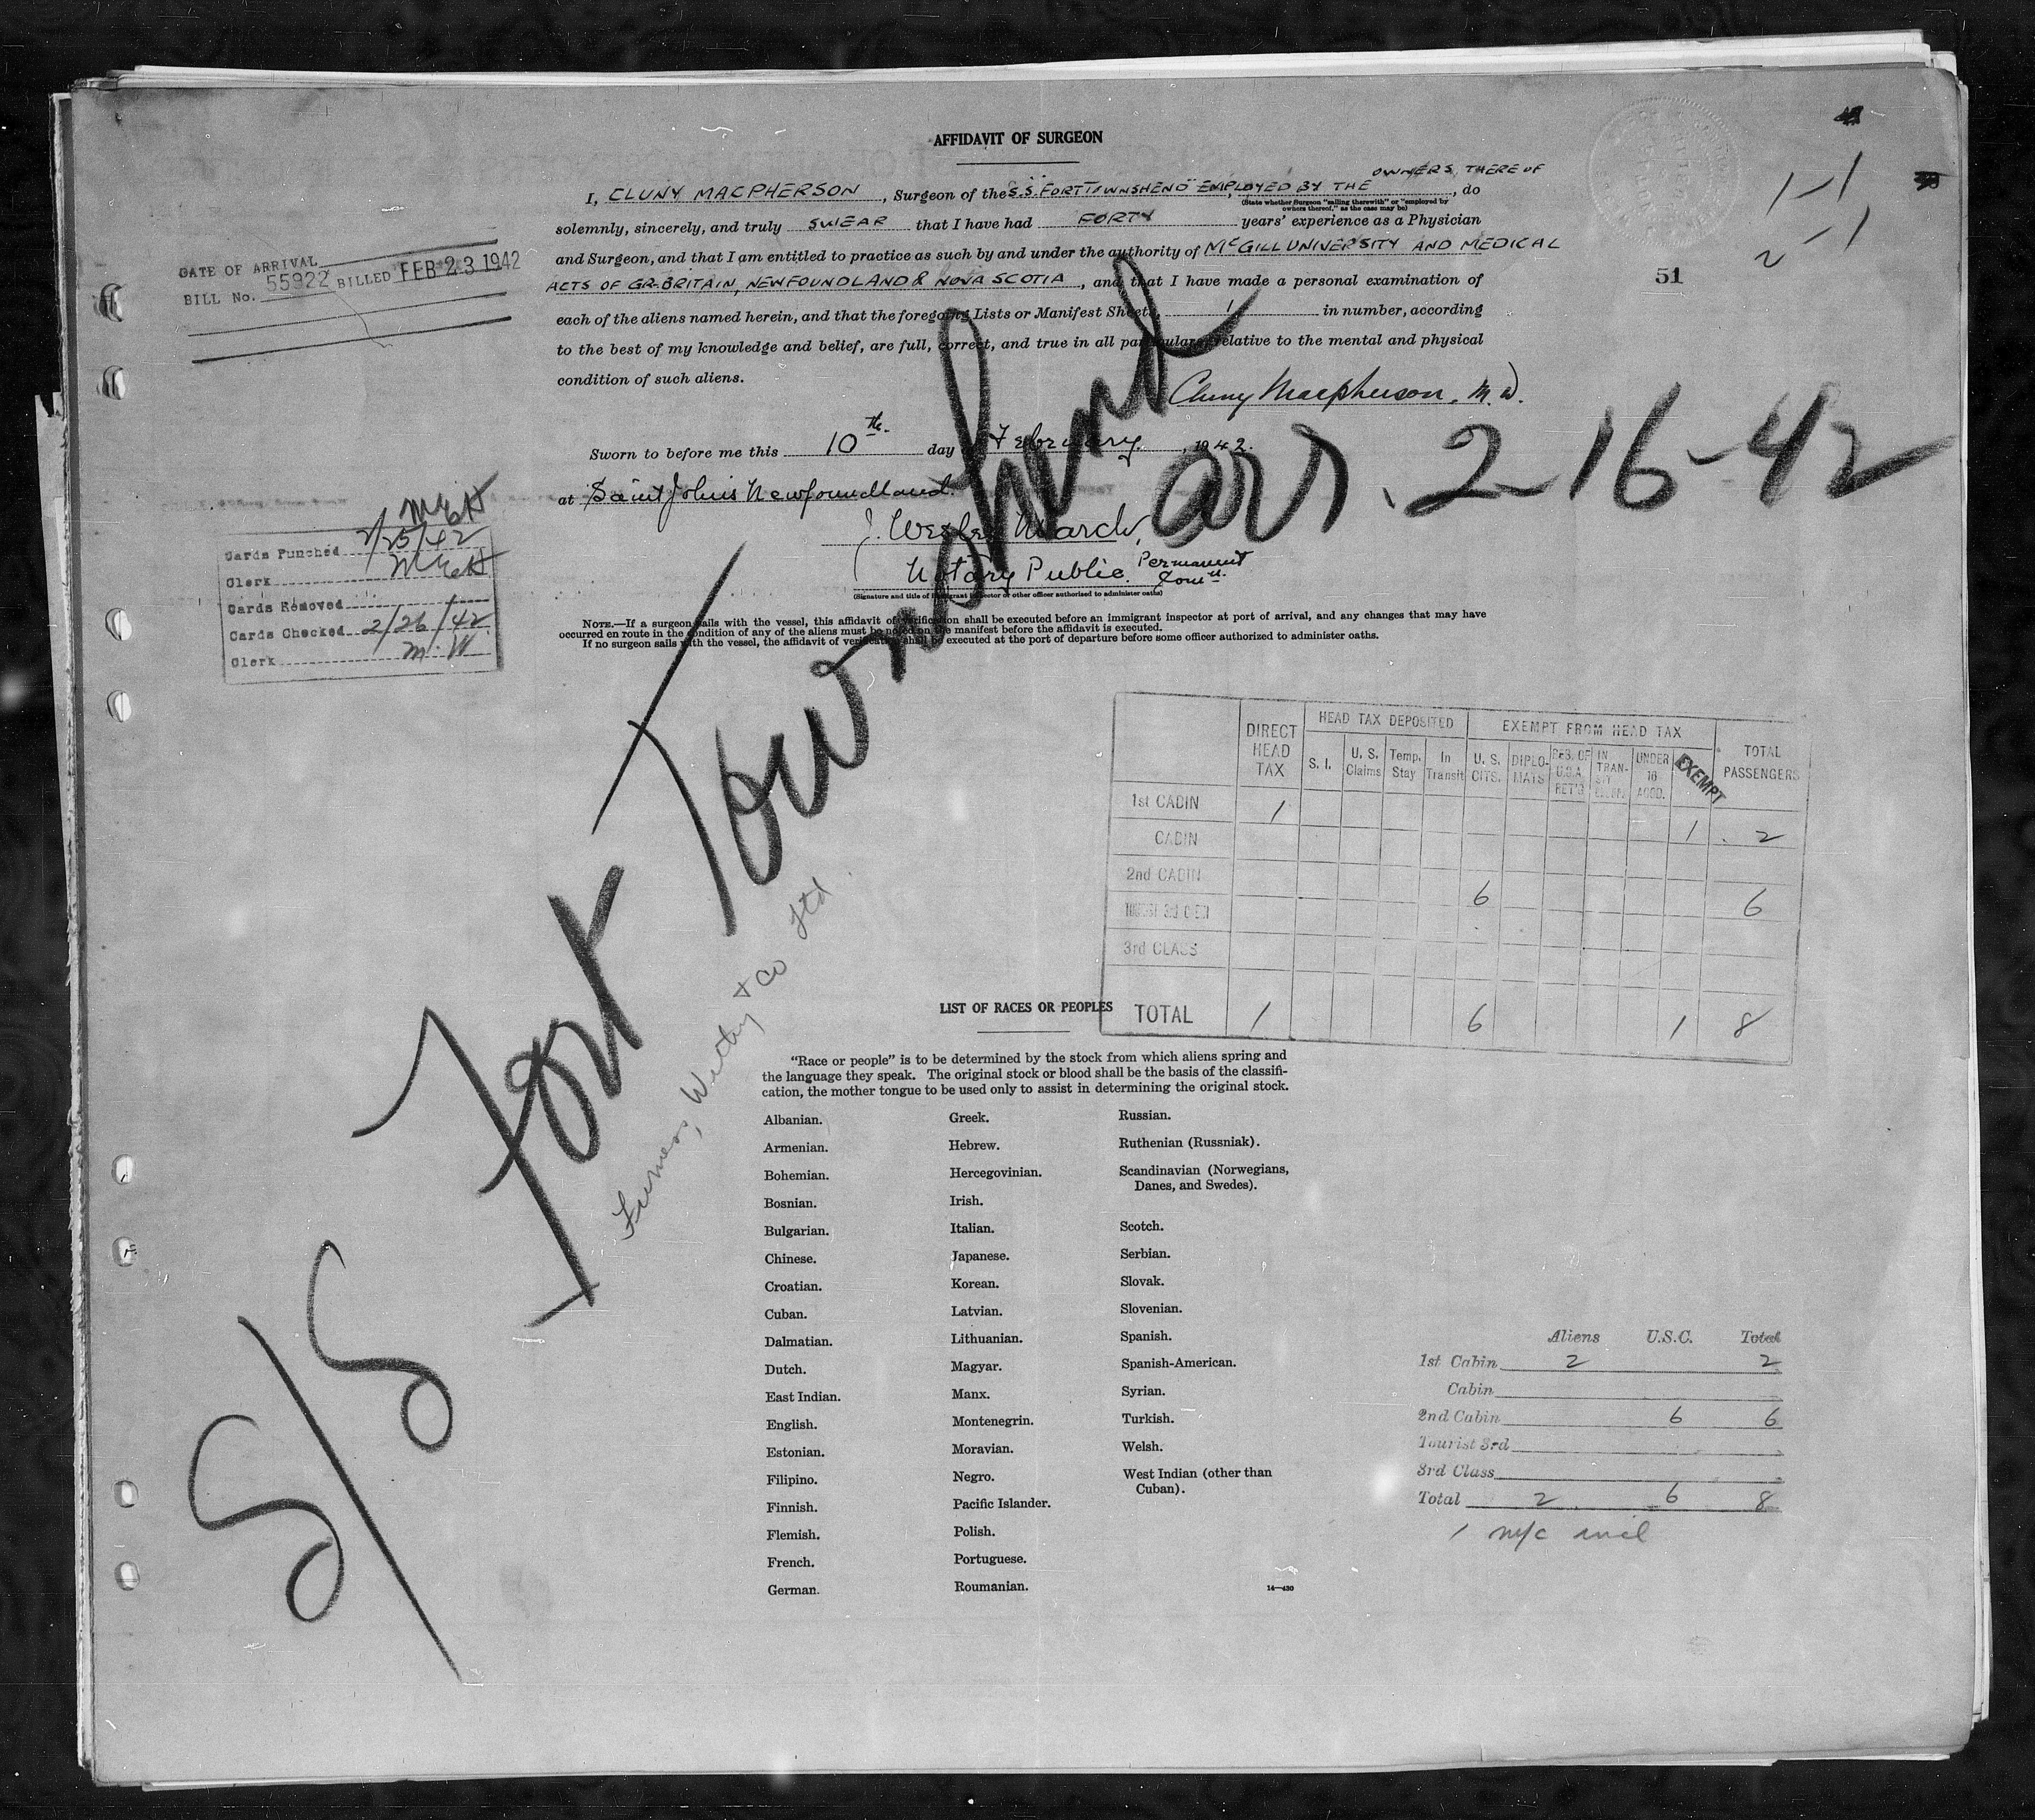 AFFIDAVIT OF SURGEON
OWNERS THERE OF
I, CLUNY MACPHERSON, Surgeon of the S.S. FORT TOWNSHEND" EMPLOYED BY THE, do
(State whether Surgeon "sailing therewith" or "employed by
owners thereof," as the case may be)
solemnly, sincerely, and truly SWEAR that I have had FORTY years' experience as a Physician
and Surgeon, and that I am entitled to practice as such by and under the authority of McGILL UNIVERSITY AND MEDICAL
ACTS OF GR. BRITAIN, NEWFOUNDLAND & NOVA SCOTIA, and that I have made a personal examination of
each of the aliens named herein, and that the foregoing Lists or Manifest Sheets, 1 in number, according
to the best of my knowledge and belief, are full, correct, and true in all particulars relative to the mental and physical
condition of such aliens.
Cluny Macpherson, M.D.
Sworn to before me this 10th. day of February, 1942.
at Saint John's Newfoundland.
J. Wesley March,
Notary Public. Permanent
Comn.
(Signature and title of immigrant inspector or other officer authorized to administer oaths)
NOTE.—If a surgeon sails with the vessel, this affidavit of verification shall be executed before an immigrant inspector at port of arrival, and any changes that may have
occurred en route in the condition of any of the aliens must be noted on the manifest before the affidavit is executed.
If no surgeon sails with the vessel, the affidavit of verification shall be executed at the port of departure before some officer authorized to administer oaths.
DATE OF ARRIVAL
BILL No. 55922 BILLED FEB 23 1942
1-1
2-1
51
Cards Punched 2/25/42
Clerk
Cards Removed
Cards Checked 2/26/42
Clerk M.W
S/S Fort Townshend arr. 2-16-42
Furness, Withy & Co Ltd.
DIRECT HEAD TAX
HEAD TAX DEPOSITED
EXEMPT FROM HEAD TAX
TOTAL PASSENGERS
S. I. U. S. Claims Temp. Stay In Transit U. S. CITS. DIPLO-MATS RES. OF U.S.A. RET'G IN TRAN-SIT UNDER 16 ACCD. EXEMPT
1st CABIN 1
CABIN 1 2
2nd CABIN
6 6
3rd CLASS
TOTAL 1 6 1 8
LIST OF RACES OR PEOPLES
"Race or people" is to be determined by the stock from which aliens spring and
the language they speak. The original stock or blood shall be the basis of the classifi-
cation, the mother tongue to be used only to assist in determining the original stock.
Albanian.
Armenian.
Bohemian.
Bosnian.
Bulgarian.
Chinese.
Croatian.
Cuban.
Dalmatian.
Dutch.
East Indian.
English.
Estonian.
Filipino.
Finnish.
Flemish.
French.
German.
Greek.
Hebrew.
Hercegovinian.
Irish.
Italian.
Japanese.
Korean.
Latvian.
Lithuanian.
Magyar.
Manx.
Montenegrin.
Moravian.
Negro.
Pacific Islander.
Polish.
Portuguese.
Roumanian.
Russian.
Ruthenian (Russniak).
Scandinavian (Norwegians,
Danes, and Swedes).
Scotch.
Serbian.
Slovak.
Slovenian.
Spanish.
Spanish-American.
Syrian.
Turkish.
Welsh.
West Indian (other than
Cuban).
14—430
Aliens U.S.C. Total
1st Cabin 2 2
Cabin
2nd Cabin 6 6
Tourist 3rd
3rd Class
Total 2 6 8
1 n/c incl